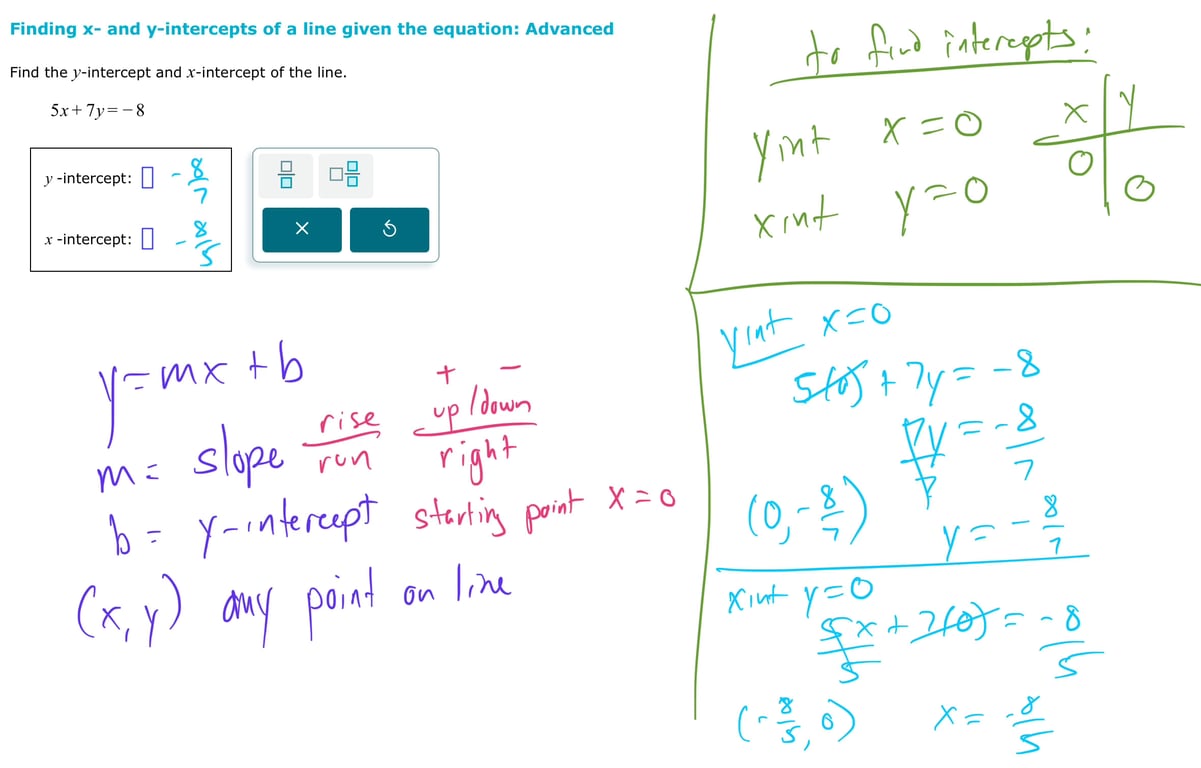 Finding x- and y-intercepts of a line given the equation: Advanced
Find the y-intercept and x-intercept of the line.
5x + 7y = −8
y -intercept: - 8/7
x -intercept: - 8/5
y = mx + b
m = slope rise/run + − up/down / right
b = y-intercept starting point x = 0
(x, y) any point on line
to find intercepts:
y int x = 0
x int y = 0
x | y
0 |
| 0
y int x = 0
5(0) + 7y = -8
7y/7 = -8/7
(0, -8/7) y = -8/7
x int y = 0
5x/5 + 7(0) = -8/5
(-8/5, 0) x = -8/5